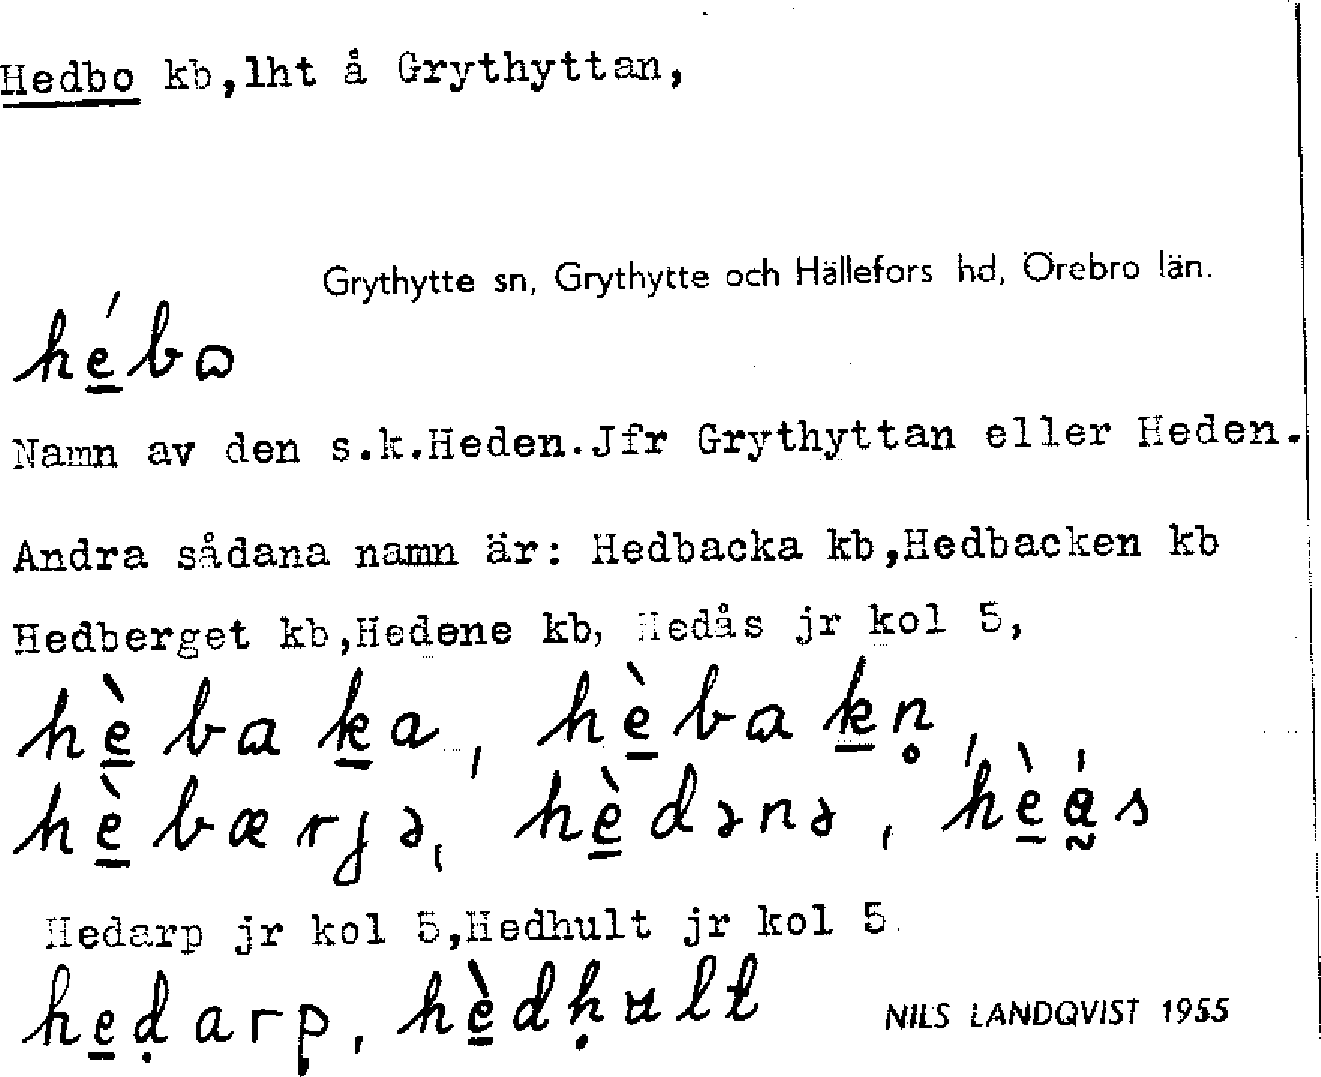 Hedbo kb,lht å Grythyttan,
Grythytte sn, Grythytte och Hällefors hd, Örebro län.
hé̱bɷ
Namn av den s.k.Heden.Jfr Grythyttan eller Heden.
Andra sådana namn är: Hedbacka kb,Hedbacken kb
Hedberget kb,Hedene kb, Hedås jr kol 5,
hè̱baḵa, hè̱baḵn̥,
hè̱bærjə, hè̱dənə, hè̱ǻs
Hedarp jr kol 5,Hedhult jr kol 5.
he̱ḍarp, hè̱dḥult
NILS LANDQVIST 1955